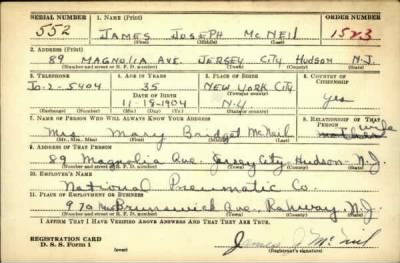 SERIAL NUMBER 1. NAME (Print) ORDER NUMBER
552 JAMES JOSEPH MC NEIL 1523
(First) (Middle) (Last)
2. ADDRESS (Print)
89 MAGNOLIA AVE. JERSEY CITY HUDSON N.J.
(Number and street or R. F. D. number) (Town) (County) (State)
3. TELEPHONE 4. AGE IN YEARS 5. PLACE OF BIRTH 6. COUNTRY OF CITIZENSHIP
JO-2-5404 35 NEW YORK CITY
DATE OF BIRTH (Town or county)
11-18-1904 N-Y yes
(Exchange) (Number) (Mo.) (Day) (Yr.) (State or country)
7. NAME OF PERSON WHO WILL ALWAYS KNOW YOUR ADDRESS 8. RELATIONSHIP OF THAT PERSON
Mrs. Mary Bridget McNeil wife
(Mr., Mrs., Miss) (First) (Middle) (Last)
9. ADDRESS OF THAT PERSON
89 Magnolia Ave. Jersey City Hudson - N.J.
(Number and street or R. F. D. number) (Town) (County) (State)
10. EMPLOYER'S NAME
National Pneumatic Co.
11. PLACE OF EMPLOYMENT OR BUSINESS
970 New Brunswick Ave., Rahway, N.J.
(Number and street or R. F. D. number) (Town) (County) (State)
I AFFIRM THAT I HAVE VERIFIED ABOVE ANSWERS AND THAT THEY ARE TRUE.
REGISTRATION CARD
D. S. S. Form 1 (over) James J McNeil
(Registrant's signature)